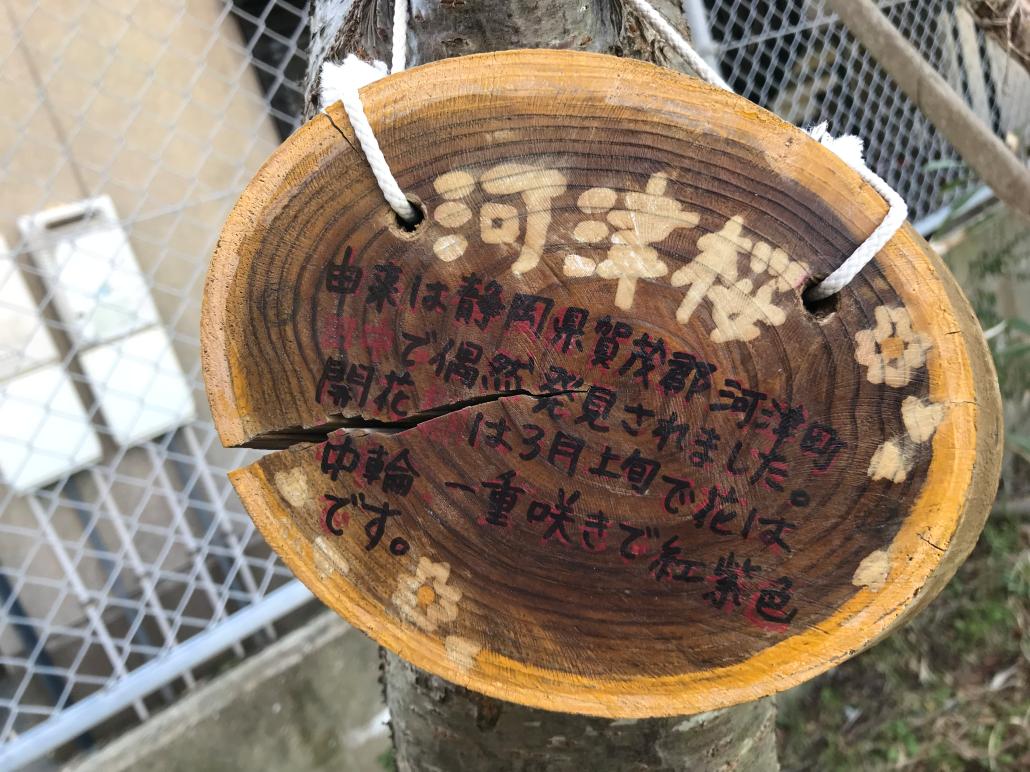 河津桜
由来は静岡県賀茂郡河津町
田中で偶然発見されました。
開花 は3月上旬で花は
中輪 一重咲きで紅紫色
です。